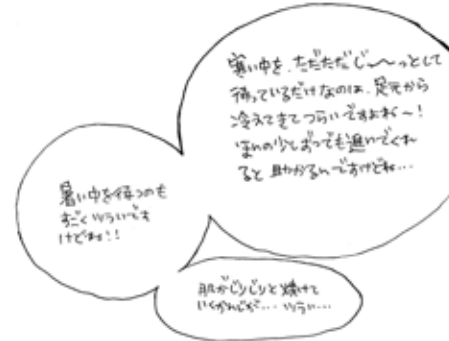 寒い中を、ただただじ〜〜っとして
待っているだけなのは、足元から
冷えてきてつらいですよね〜!
ほんの少しずつでも進いでくれ
ると助かるんですけどね…
暑い中を待つのも
すごくツライです
けどね!!
肌がじりじりと焼けて
いくかんじが…ツラい…